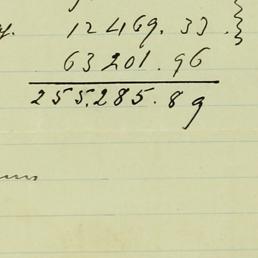 12469.33.}
63201.96
255.285.89